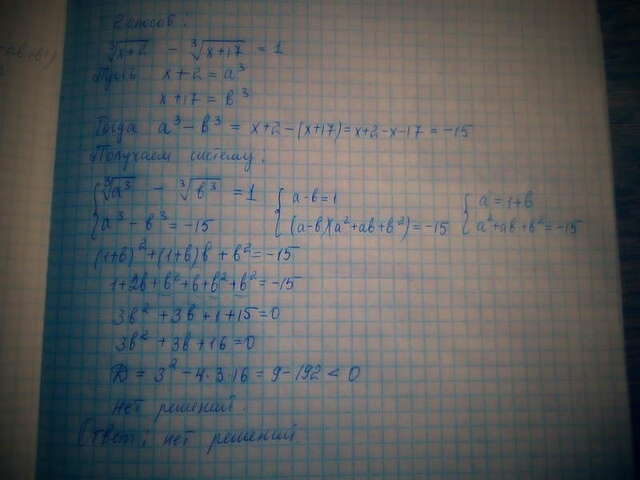 2 способ:
∛(x+2) - ∛(x+17) = 1
Пусть x+2 = a³
x+17 = b³
Тогда a³-b³ = x+2-(x+17)=x+2-x-17=-15
Получаем систему:
{∛a³ - ∛b³ = 1 {a-b=1 {a=1+b
{a³-b³=-15 {(a-b)(a²+ab+b²)=-15 {a²+ab+b²=-15
(1+b)²+(1+b)b+b²=-15
1+2b+b²+b+b²+b²=-15
3b²+3b+1+15=0
3b²+3b+16=0
D = 3²-4·3·16=9-192<0
нет решений.
Ответ: нет решений.